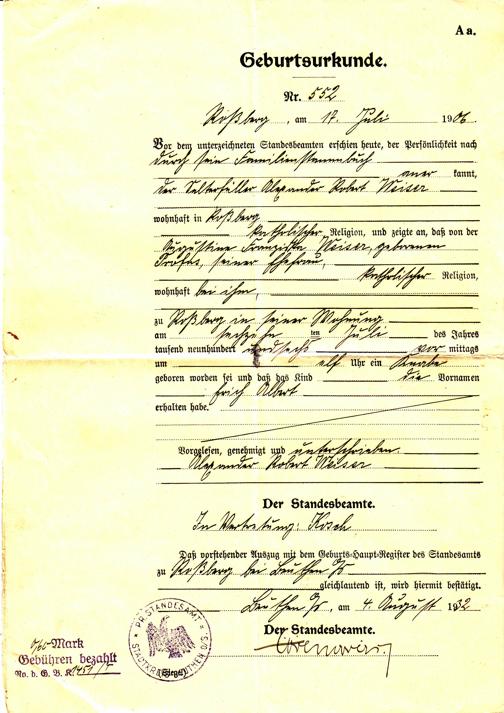 A a.
Geburtsurkunde.
Nr. 552
Roßberg, am 17. Juli 1906
Vor dem unterzeichneten Standesbeamten erschien heute, der Persönlichkeit nach
durch sein Familienstammbuch
aner kannt,
der Selterfüller Alexander Robert Weiser
wohnhaft in Roßberg
katholischer Religion, und zeigte an, daß von der
Augustine Franziska Weiser, geborenen
seiner Ehefrau,
katholischer Religion,
wohnhaft bei ihm,
zu Roßberg in seiner Wohnung
am sechzehn ten Juli des Jahres
tausend neunhundert und sechs vor mittags
um elf Uhr ein Knabe
geboren worden sei und daß das Kind die Vornamen
Erich Albert
erhalten habe.
Vorgelesen, genehmigt und unterschrieben.
Alexander Robert Weiser
Der Standesbeamte.
In Vertretung: Kosch
Daß vorstehender Auszug mit dem Geburts-Haupt-Register des Standesamts
zu Roßberg bei Beuthen O/S
gleichlautend ist, wird hiermit bestätigt.
Beuthen O/S, am 4. August 1932
Der Standesbeamte.
(Siegel)
PR. STANDESAMT
STADTKREIS BEUTHEN O/S.
0,60 Mark
Gebühren bezahlt
No. d. G. B. K.